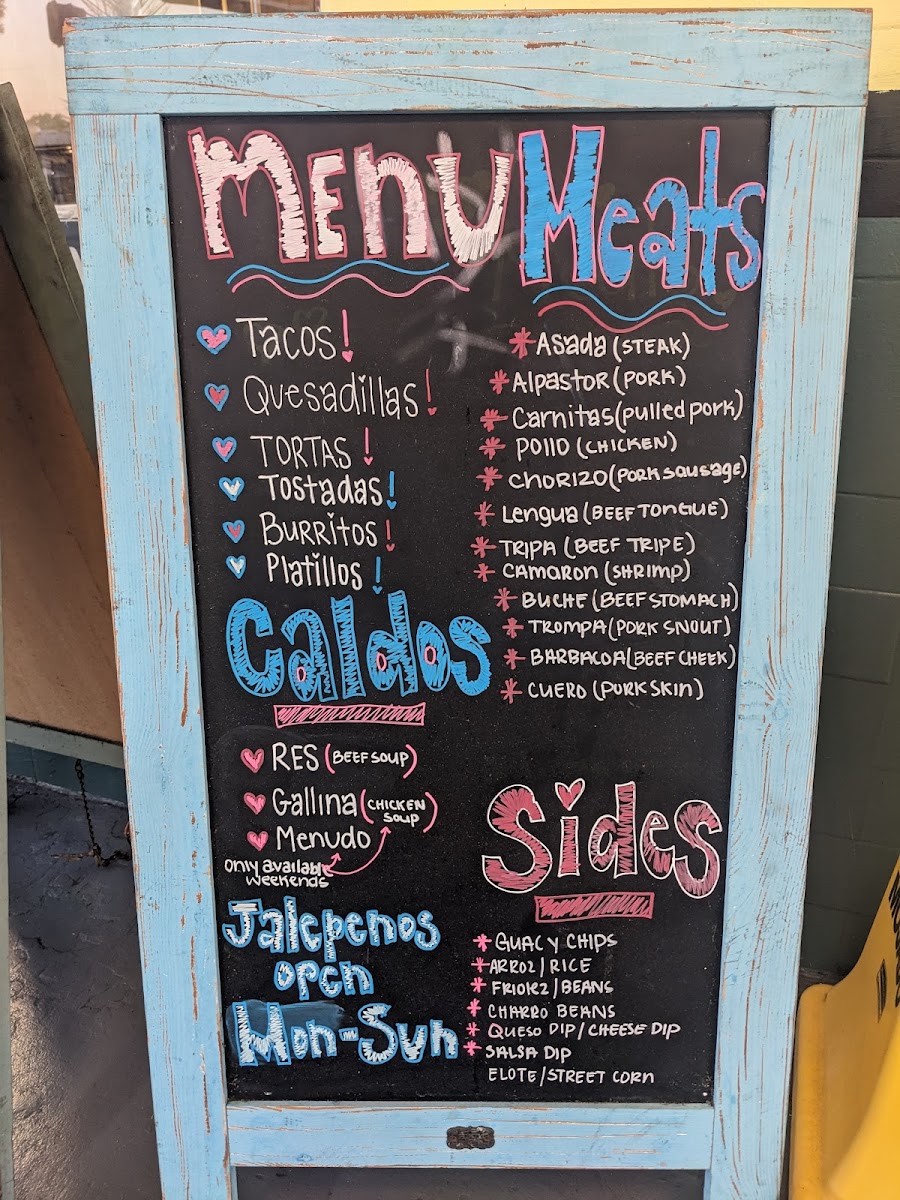 Menu
Tacos!
Quesadillas!
TORTAS!
Tostadas!
Burritos!
Platillos!
Caldos
RES (BEEF SOUP)
Gallina (CHICKEN
SOUP)
Menudo
only available
weekends
Jalepenos
open
Mon-Sun
Meats
* Asada (STEAK)
* Alpastor (PORK)
* Carnitas (pulled pork)
* Pollo (CHICKEN)
* CHORIZO (PORK SAUSAGE)
* Lengua (BEEF TONGUE)
* TRIPA (BEEF TRIPE)
* CAMARON (SHRIMP)
* BUCHE (BEEF STOMACH)
* TROMPA (PORK SNOUT)
* BARBACOA (BEEF CHEEK)
* CUERO (PORK SKIN)
Sides
* GUAC y CHIPS
* ARROZ / RICE
* FRIOKZ / BEANS
* CHARRO BEANS
* QUESO DIP / CHEESE DIP
* SALSA DIP
ELOTE / STREET CORN